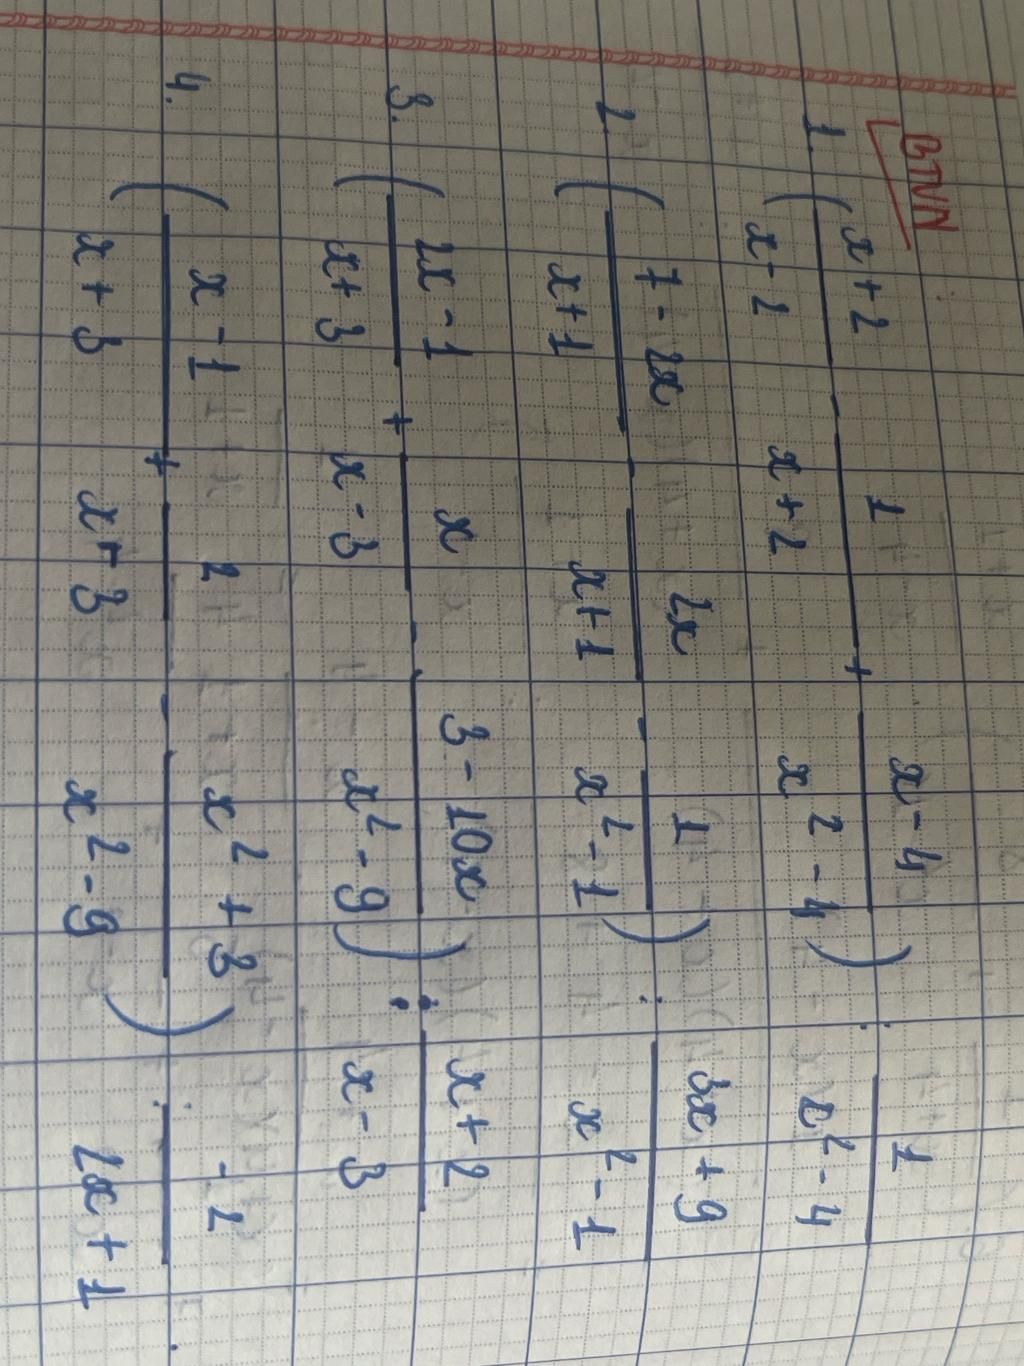 BTVN
1. ( \frac{x+2}{x-2} - \frac{1}{x+2} + \frac{x-4}{x²-4} ) : \frac{1}{x²-4}
2. ( \frac{7-2x}{x+1} - \frac{2x}{x+1} - \frac{1}{x²-1} ) : \frac{3x+9}{x²-1}
3. ( \frac{2x-1}{x+3} + \frac{x}{x-3} - \frac{3-10x}{x²-9} ) : \frac{x+2}{x-3}
4. ( \frac{x-1}{x+3} + \frac{2}{x-3} - \frac{x²+3}{x²-9} ) : \frac{-2}{2x+1} .